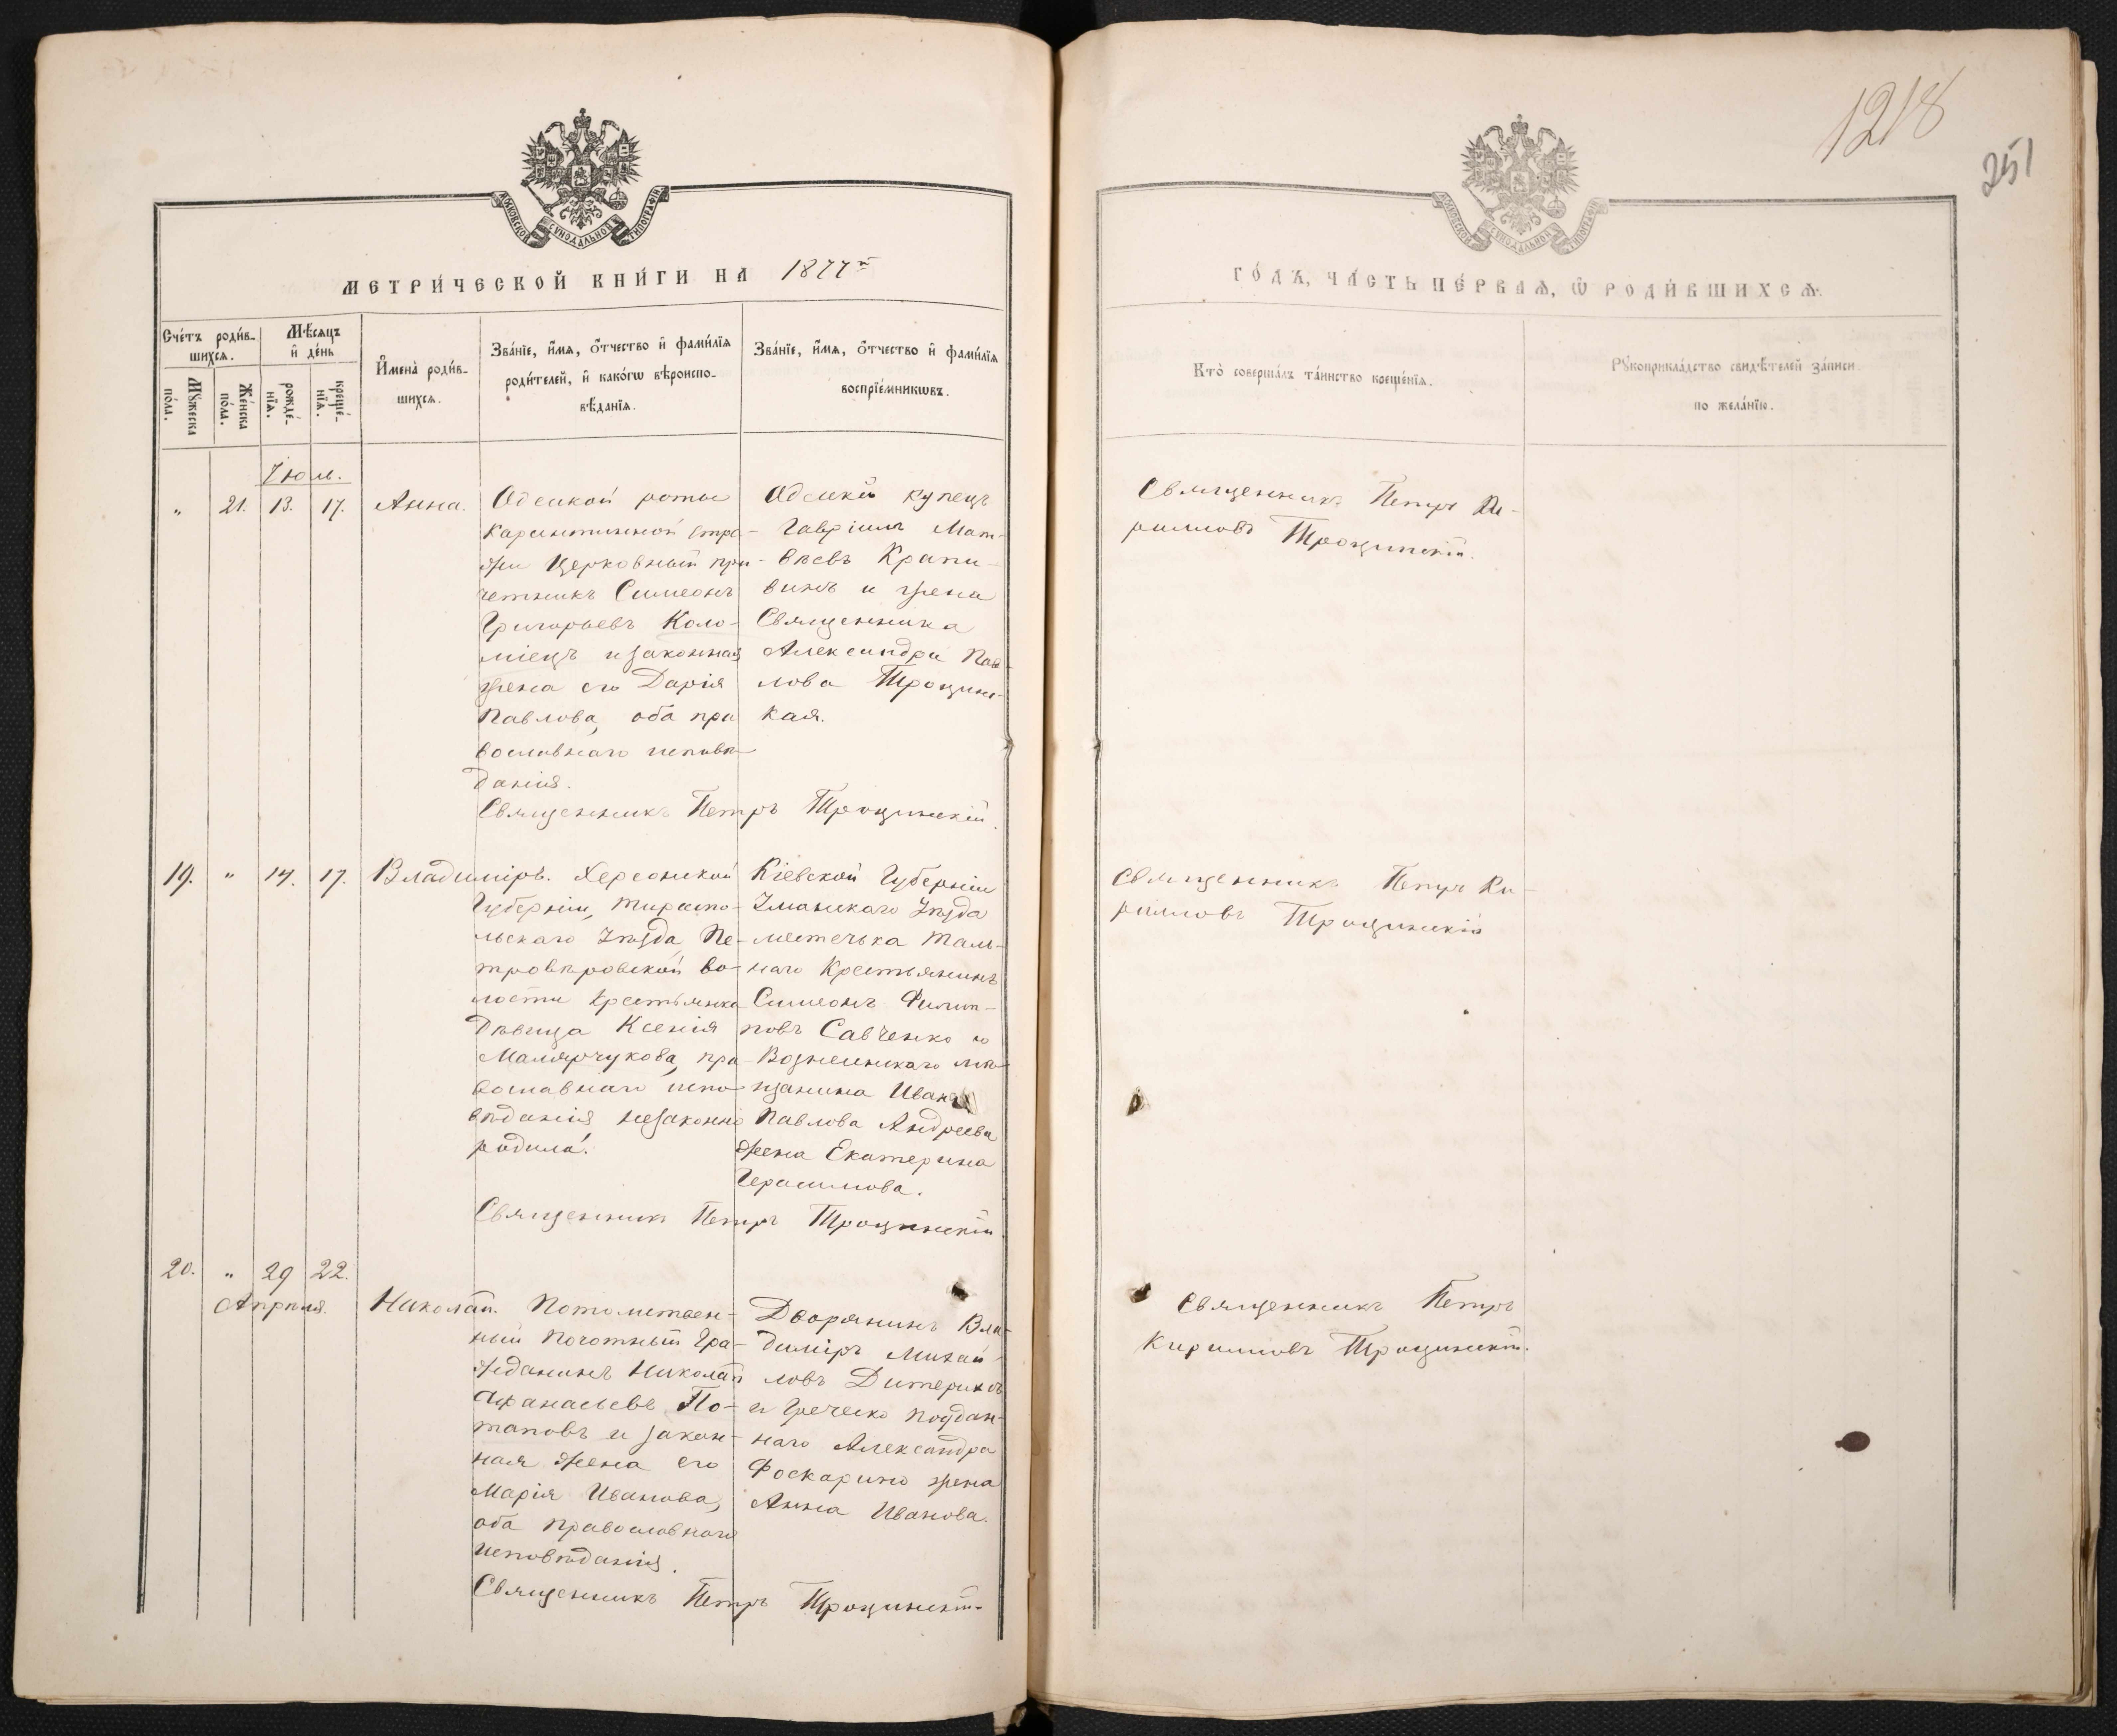 1218
251
МОСКОВСКОЙ СУНОДАЛЬНОЙ ТИПОГРАФІИ
МОСКОВСКОЙ СУНОДАЛЬНОЙ ТИПОГРАФІИ
МЕТРИ́ЧЕСКОЙ КНИ́ГИ НА 1877й
ГО́ДЪ, ЧА́СТЬ ПЕ́РВАѦ, Ѡ РОДИ́ВШИХСѦ.
Сче́тъ роди́в-
шихсѧ.
Мꙋ́жеска
по́ла.
Же́нска
по́ла.
Мѣ́сѧцъ
и҆ де́нь
рожде́-
нїѧ.
креще́-
нїѧ.
И҆мена̀ роди́в-
шихсѧ.
Зва́нїе, и҆́мѧ, ѻ҆́тчество и҆ фами́лїѧ
роди́телей, и҆ како́гѡ вѣроиспо-
вѣ́данїѧ.
Зва́нїе, и҆́мѧ, ѻ҆́тчество и҆ фами́лїѧ
воспрїе́мникѡвъ.
Кто̀ соверша́лъ та́инство креще́нїѧ.
Рꙋкоприкла́дство свидѣ́телей за́писи
по жела́нїю.
Іюль.
„ 21. 13. 17. Анна.
Одесской роты
карантинной стра-
жи Церковный при-
четникъ Симеонъ
Григорьевъ Коло-
міецъ и законная
жена его Дарія
Павлова, оба пра
вославнаго исповѣ
данія.
Одесскій купецъ
Гавріилъ Мат-
вѣевъ Крапи-
винъ и жена
Священника
Александра Пав
лова Трощинс-
кая.
Священникъ Петръ Трощинскій.
Священникъ Петръ Ки-
риловъ Трощинскій.
19. „ 14. 17. Владиміръ.
Херсонской
Губерніи, Тираспо-
льскаго Уѣзда, Пе-
тровѣровской во-
лости крестьянка
дѣвица Ксенія
Малярчукова, пра
вославнаго испо
вѣданія незаконно
родила.
Кіевской Губерніи
Уманскаго Уѣзда
местечька Таль-
наго Крестьянинъ
Симеонъ Филип-
повъ Савченко и
Вознесенскаго мѣ
щанина Ивана
Павлова Андреева
жена Екатерина
Герасимова.
Священникъ Петръ Трощинскій
Священникъ Петръ Ки-
риловъ Трощинскій
20. „ 29 22.
Апрѣля.
Николай.
Потомствен-
ный почотный гра-
жданинъ Николай
Афанасьевъ По-
таповъ и закон-
ная жена его
Марія Иванова,
оба православнаго
исповѣданія.
Дворянинъ Вла-
диміръ Михай-
ловъ Дитерихсъ
и Греческо поддан-
наго Александра
Фоскарино жена
Анна Иванова.
Священникъ Петръ Трощинскій
Священникъ Петръ
Кириловъ Трощинскій.